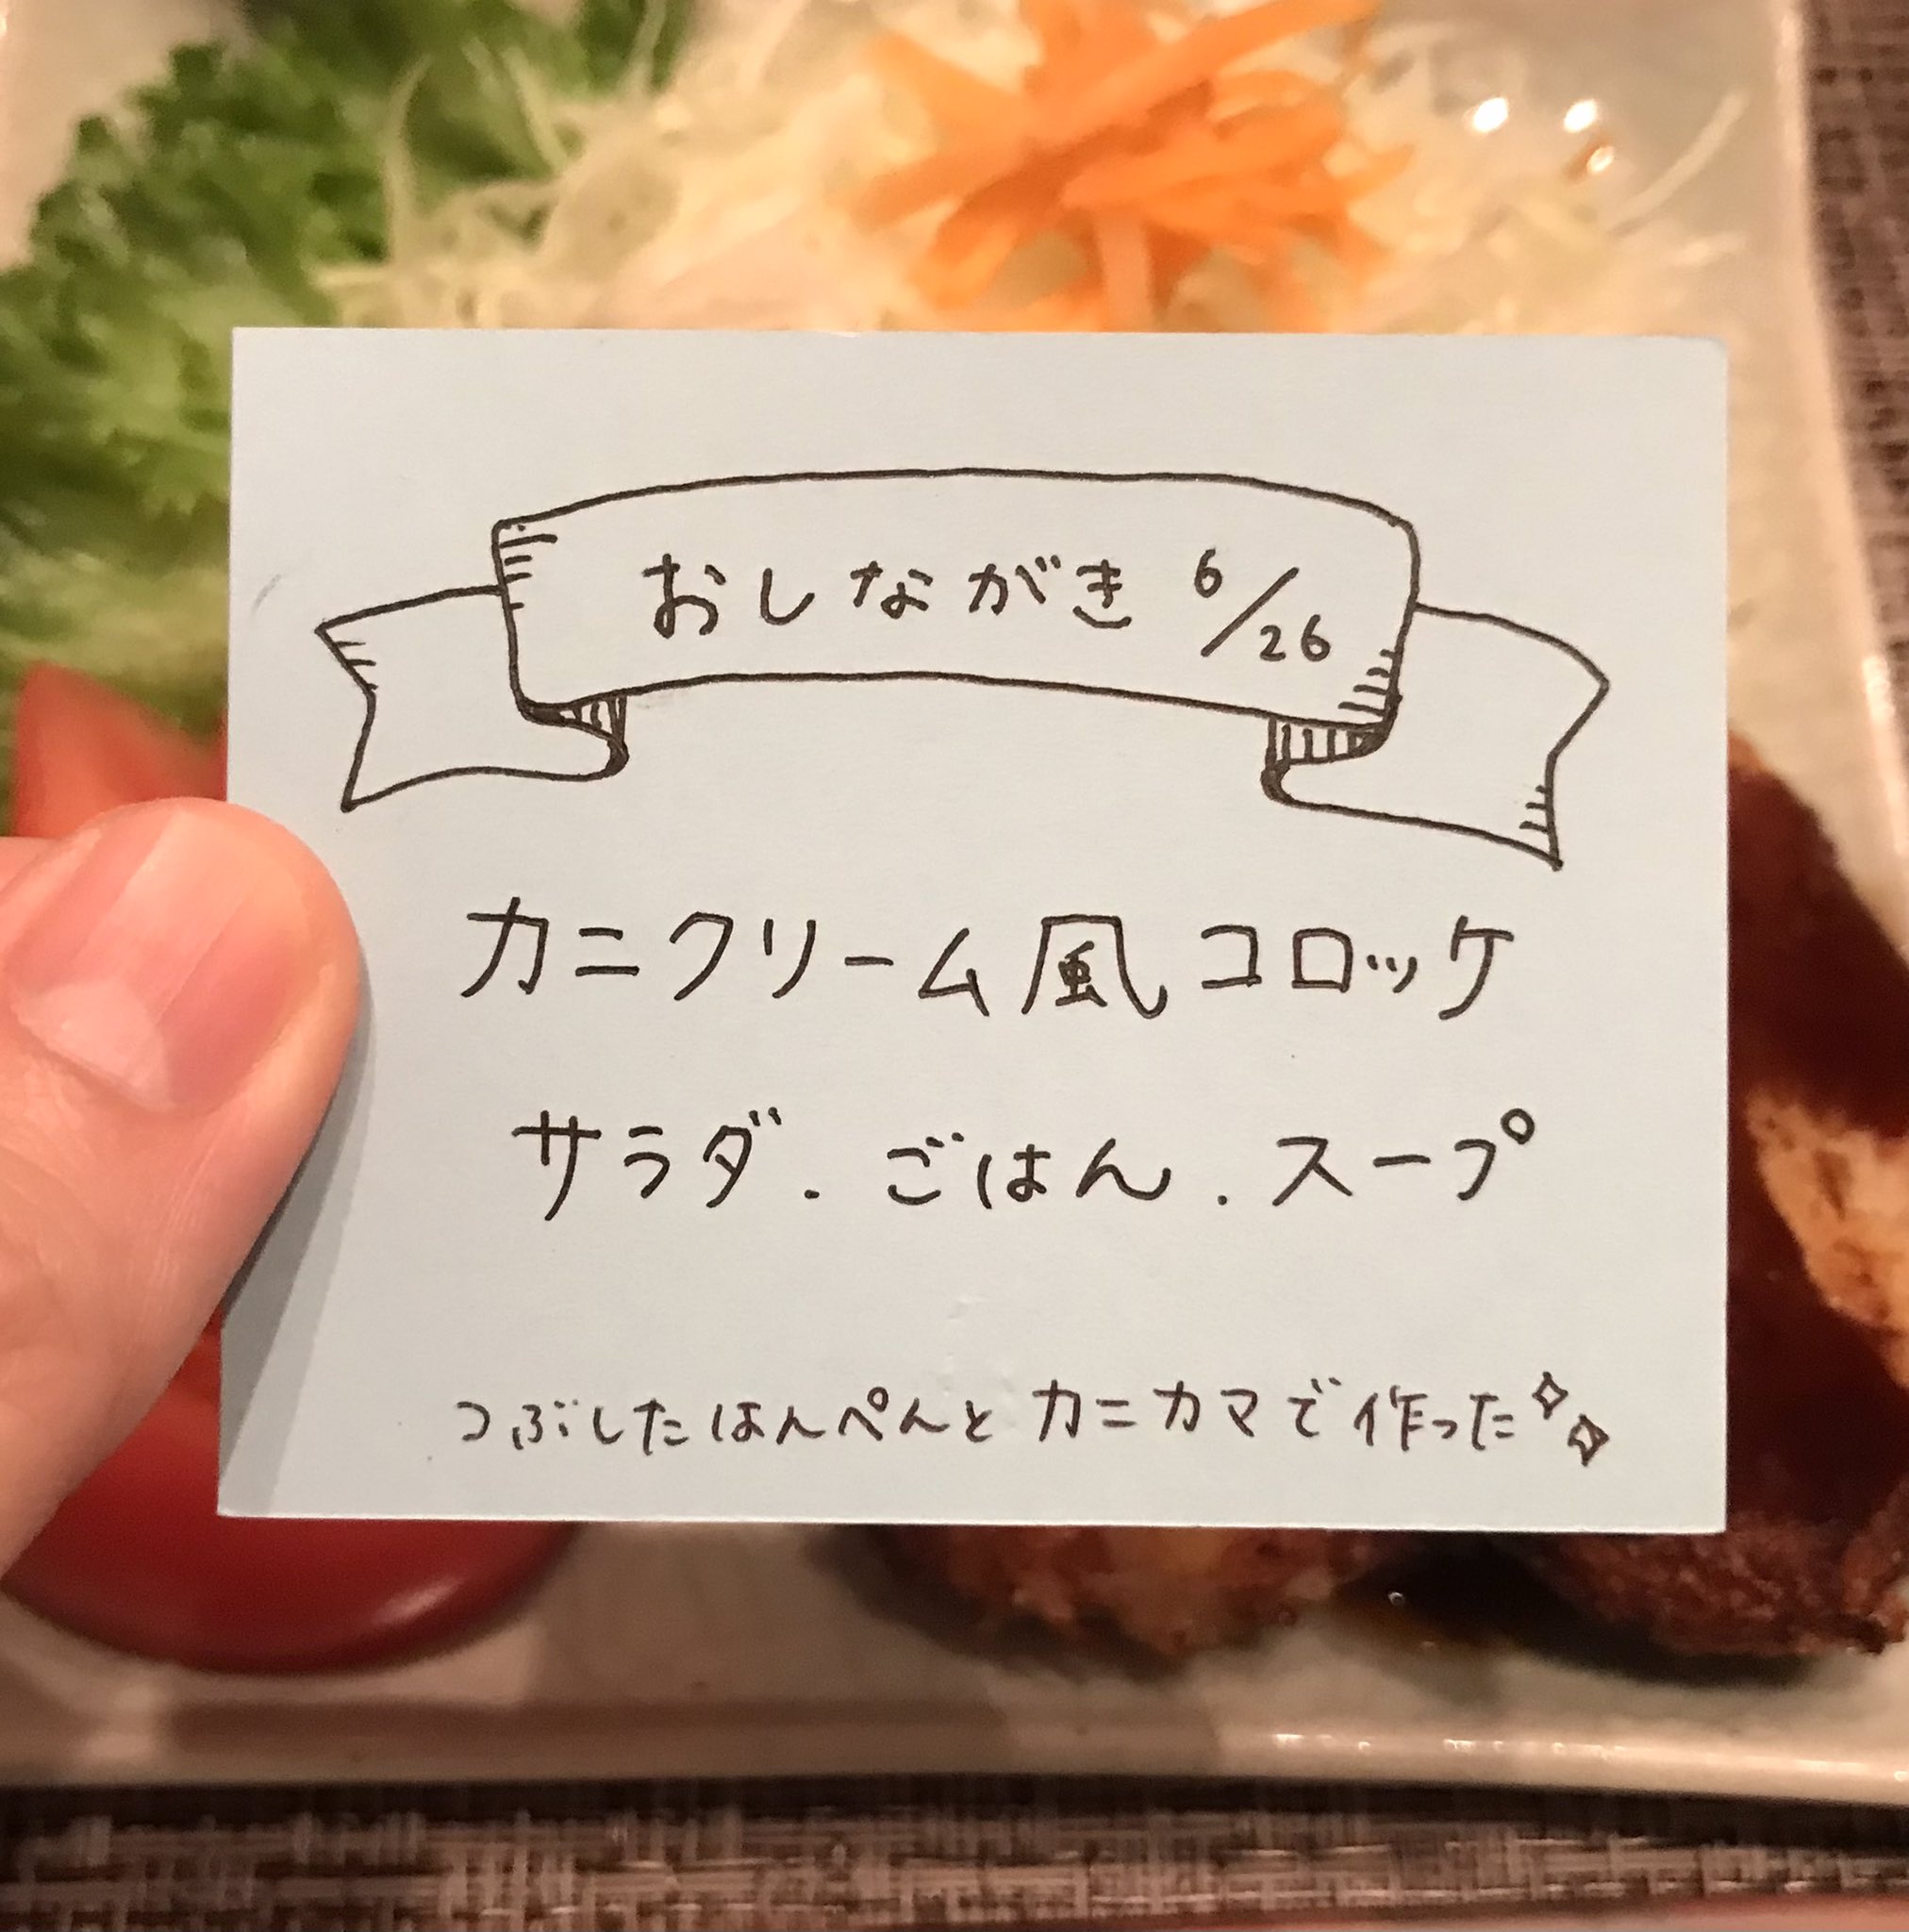 おしながき 6/26
カニクリーム風コロッケ
サラダ.ごはん.スープ
つぶしたはんぺんとカニカマで作った